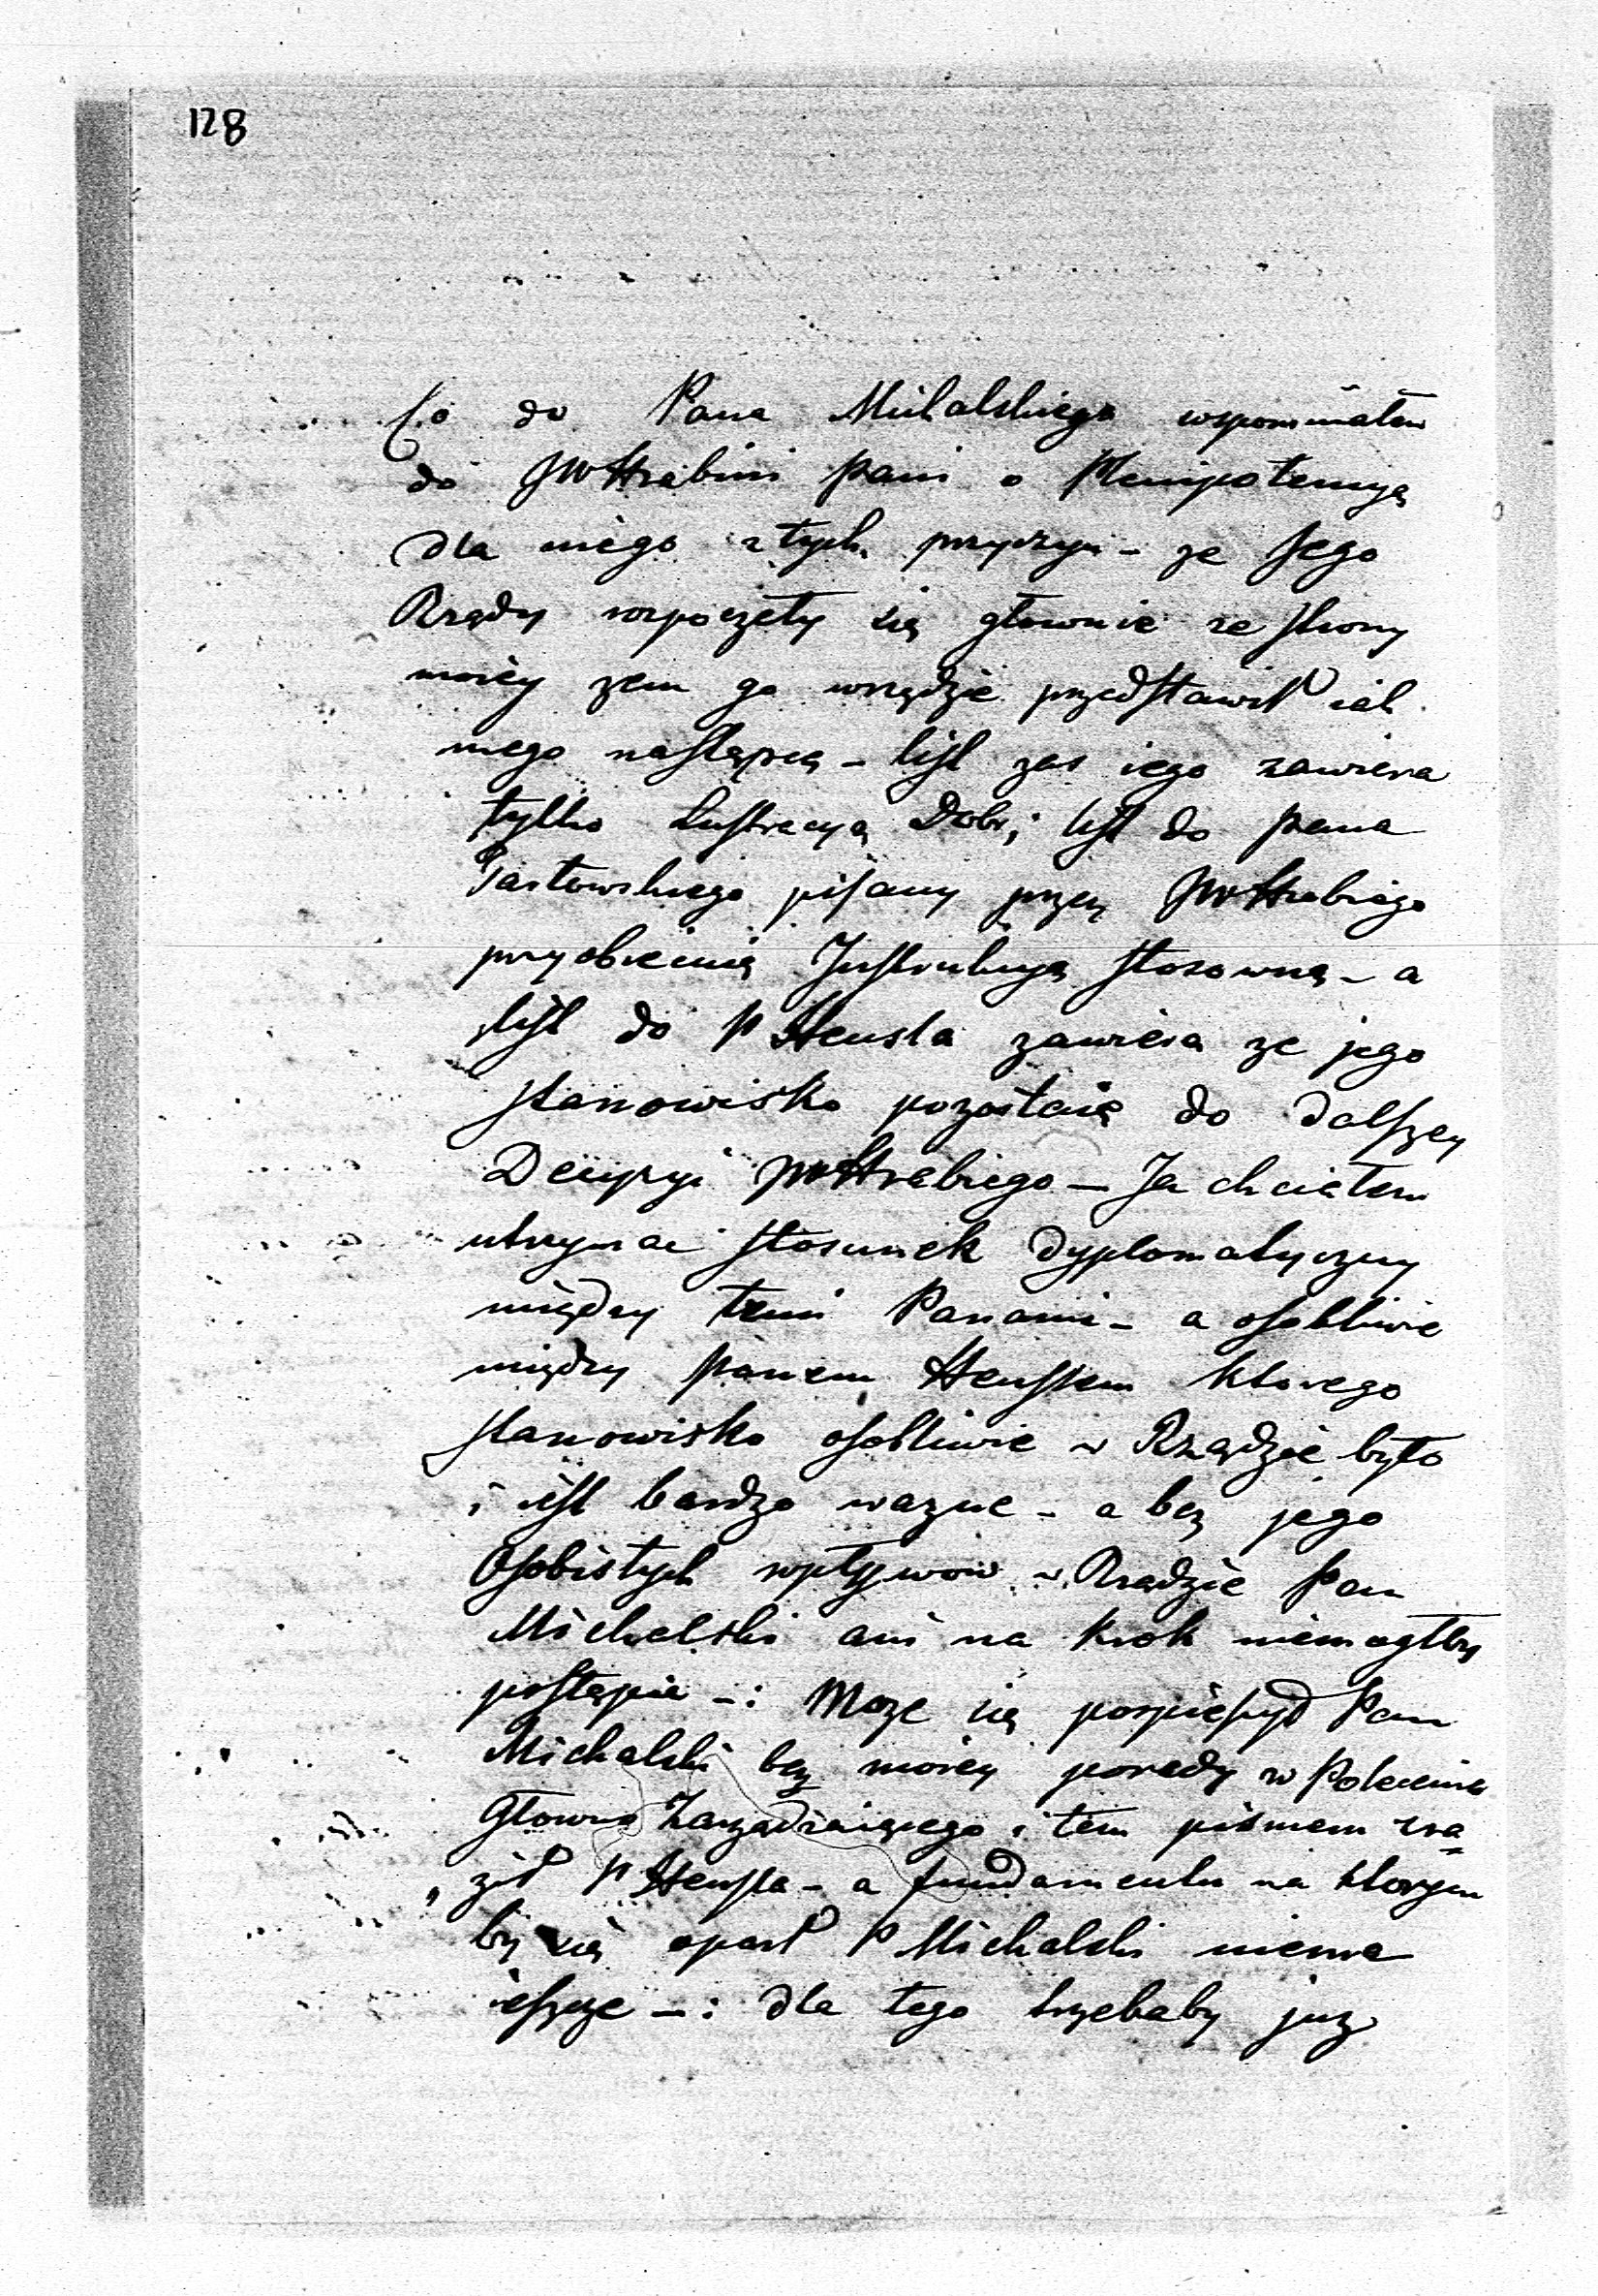 128
Co do Pana Michalskiego wspominałem
do JW Hrabini pani o Plenipotencyą
dla niego z tych przyczyn – ze Jego
Rządy rozpoczeły się głownie ze strony
moiey zem go wrządzie przedstawił iak
mego nastąpcą – list zas iego zawiera
tylko Lustracyą Dobr; list do pana
pisany przez JW Hrabiego
przyobiecuią Instrukcyą stosowną – a
list do P Hensla zawiera ze jego
stanowisko pozostaią do dalszey
Decyzyi JW Hrabiego – Ja chciałem
utrzymac stosunek dyplomatyczny
między temi Panami – a osobliwie
między panem Henslem ktorego
stanowisko osobliwie w Rządzie było
i iest bardzo wazne – a bez jego
Osobistych wpływow w Rządzie Pan
Michalski ani na krok niemogłby
postąpic –: Moze się pospieszył Pan
Michalski bez moiey porady w Polecenia
Głowno Zarządzaiącego i tem pismem zra=
ził P Hensla – a fundamentu na ktorym
by się oparł P Michalski niema
ieszcze –: dla tego trzebaby juz